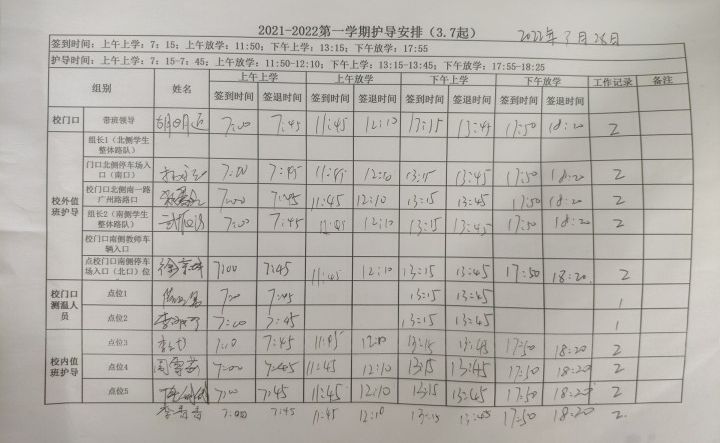 2021-2022第一学期护导安排（3.7起） 2022年3月28日
签到时间：上午上学：7：15；上午放学：11:50；下午上学：13:15；下午放学：17:55
护导时间：上午上学：7：15-7：45；上午放学：11:50-12:10；下午上学：13:15-13:45；下午放学：17:55-18:25
组别 姓名 上午上学 上午放学 下午上学 下午放学 工作记录 备注
签到时间 签退时间 签到时间 签退时间 签到时间 签退时间 签到时间 签退时间
校门口 带班领导 7:00 7:45 11:45 12:10 13:15 13:45 17:50 18:20 2
校外值班护导
组长1（北侧学生整体路队）
门口北侧停车场入口（南口） 7:00 7:45 11:45 12:10 13:15 13:45 17:50 18:20 2
校门口北侧南一路广州路路口 7:00 7:45 11:45 12:10 13:15 13:45 17:50 18:20 2
组长2（南侧学生整体路队） 7:00 7:45 11:45 12:10 13:15 13:45 17:50 18:20 2
校门口南侧教师车辆入口
点校门口南侧停车场入口（北口）位 7:00 7:45 11:45 12:10 13:15 13:45 17:50 18:20 2
校门口测温人员
点位1 7:00 7:45 13:15 13:45 1
点位2 7:00 7:45 13:15 13:45 1
校内值班护导
点位3 7:10 7:45 11:45 12:10 13:15 13:45 17:50 18:20 2
点位4 7:00 7:45 11:45 12:10 13:15 13:45 17:50 18:20 2
点位5 7:00 7:45 11:45 12:10 13:15 13:45 17:50 18:20 2
7:00 7:45 11:45 12:10 13:15 13:45 17:50 18:20 2